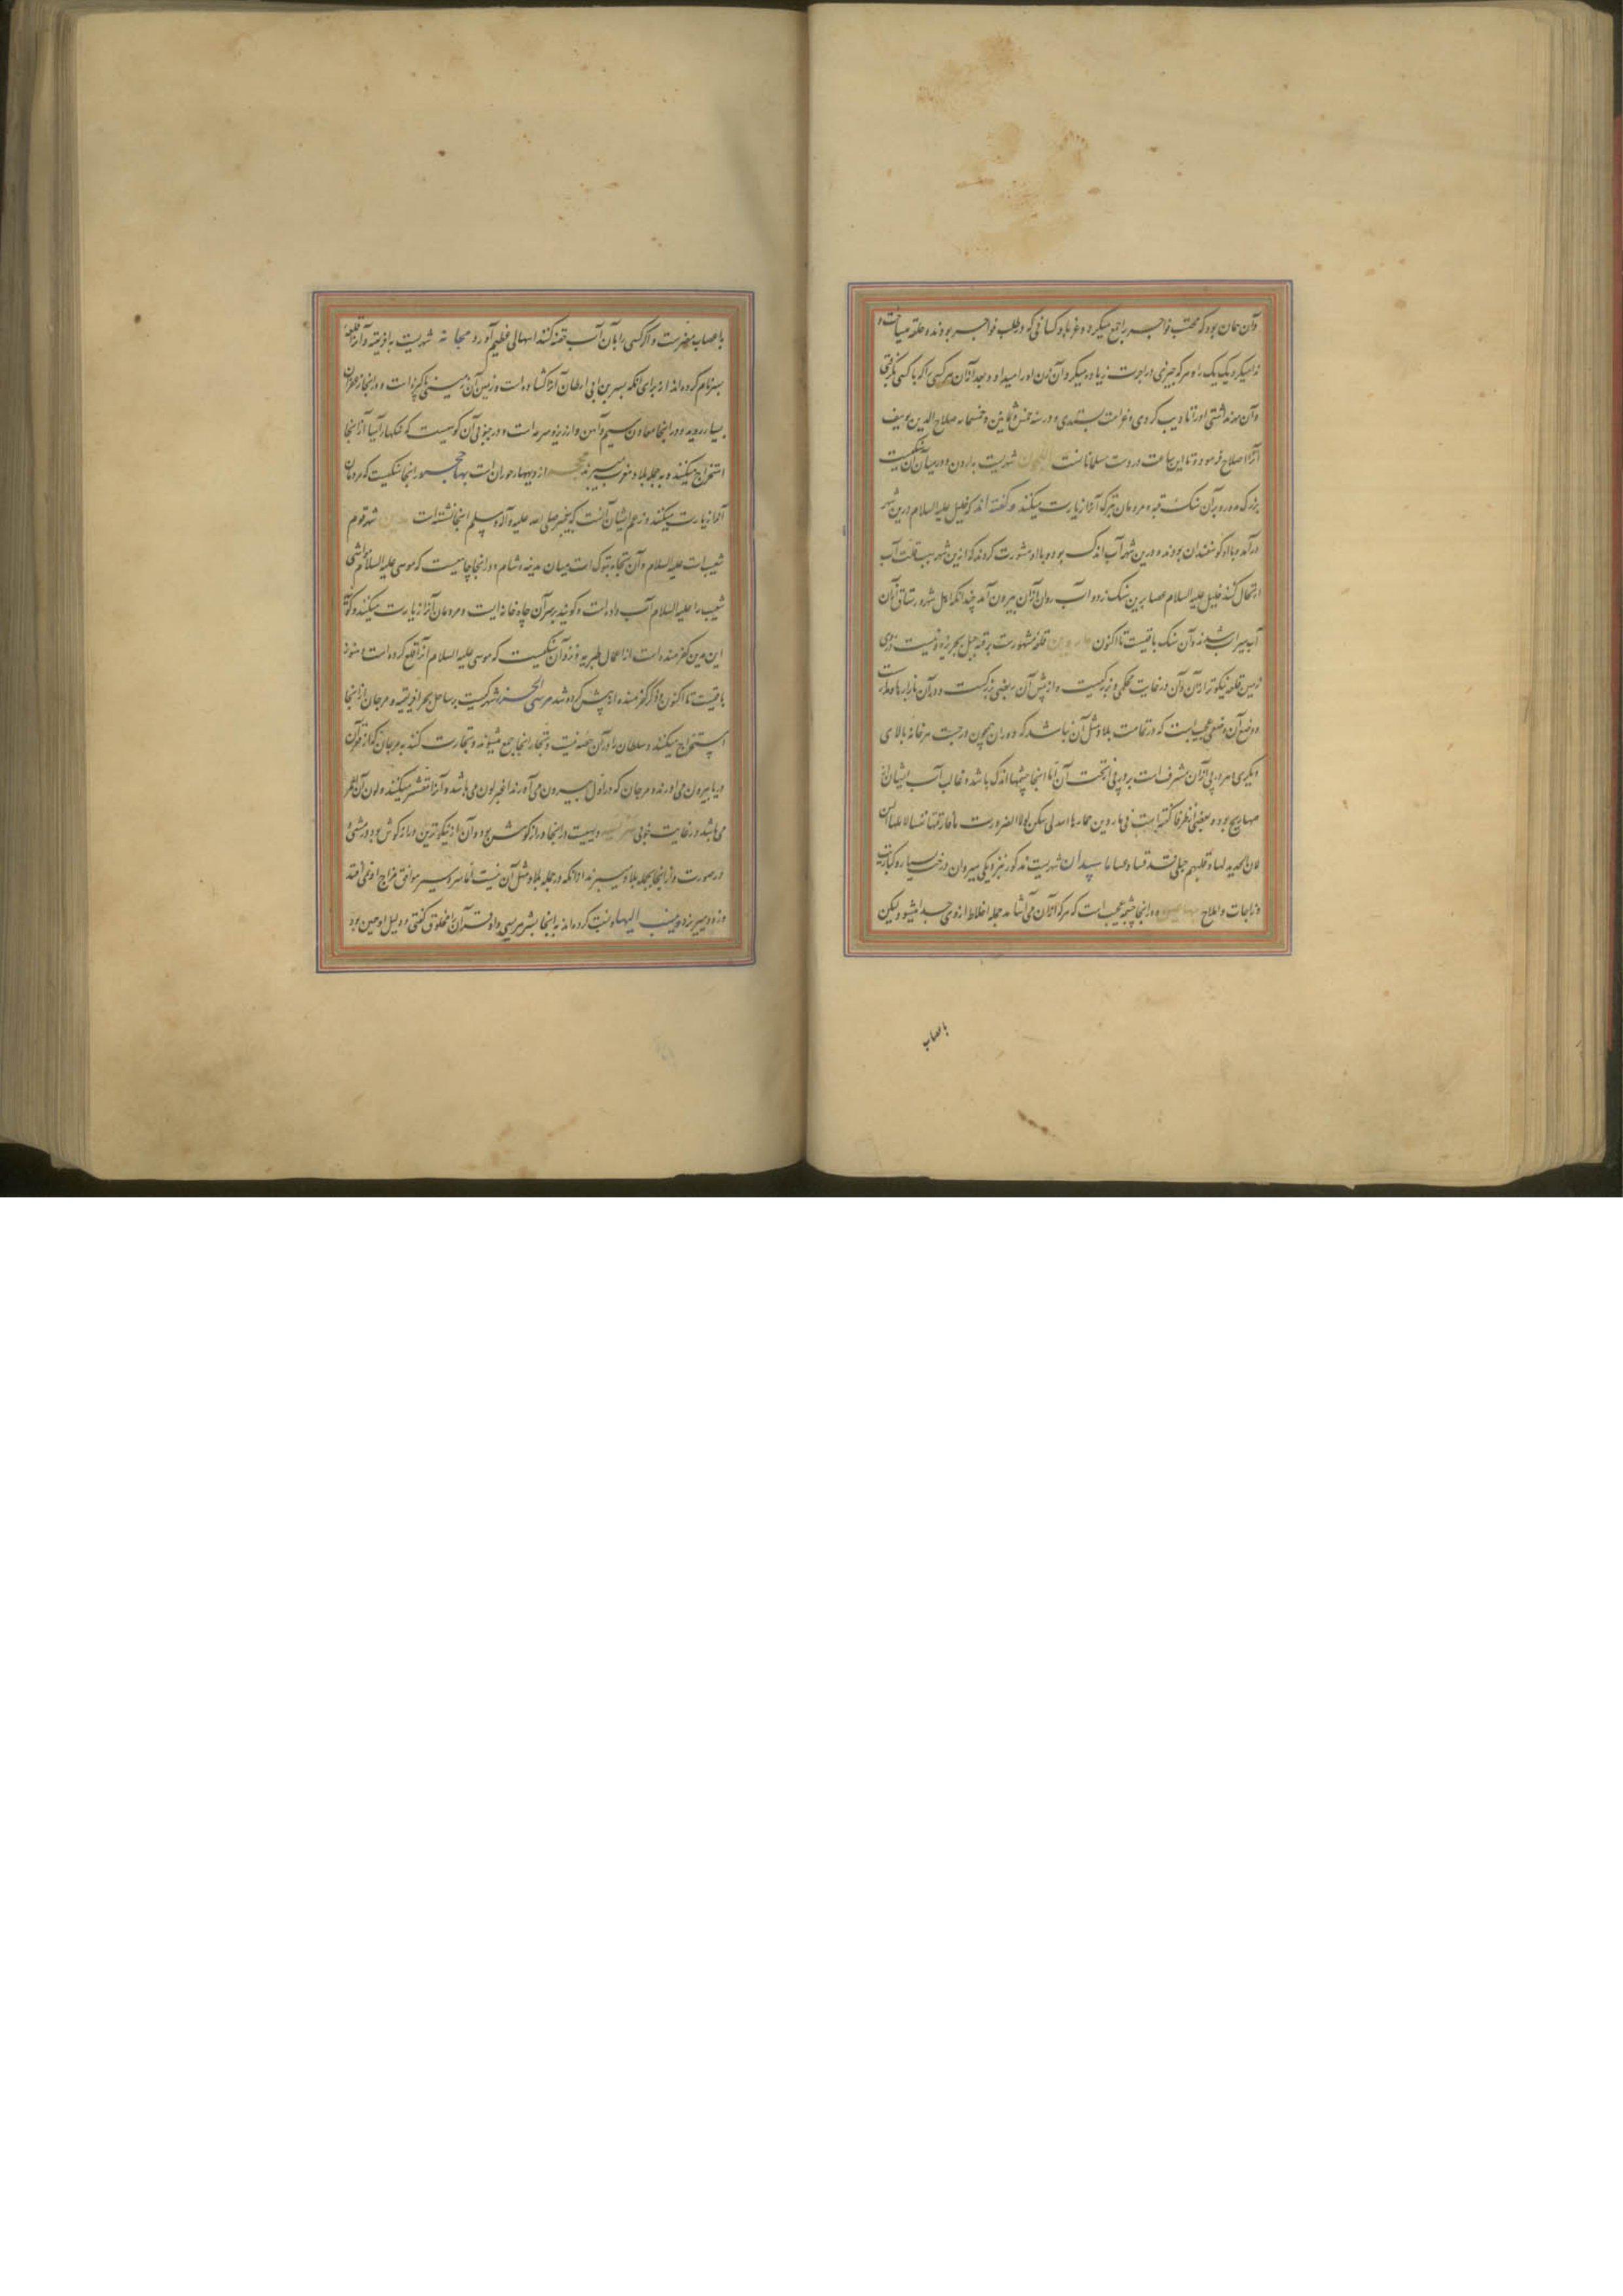 وآن چنان بود که محتسب فواجر را جمع میکرد و غربا و کسانی که در طلب فواجر بودند و حلقه میساخت و
ندا میکرد یک یک را و هر که چیزی در اجرت زیاده میکرد آن زن او را میداد و بعد ازان هر کسی را که با کسی بگرفتی
وآن مهر نداشتی او را تادیب کردی و غرامت بستدی و در سنه خمس و ثمانین و خمسمایه صلاح الدین یوسف
آنرا اصلاح فرمود و تا این ساعت در دست مسلمانانست اللجون شهریست باردن و در میان آن سنگیست
بزرگ مدور و بر آن سنگ قبه و مردمان تبرک آنرا زیارت میکنند و گفته اند که خلیل علیه السلام درین شهر
درآمد و با او گوسفندان بودند و درین شهر آب اندک بود و با او مشورت کردند که ازین شهر بسبب قلت آب
ارتحال کند خلیل علیه السلام عصا برین سنگ زد و آب روان ازان بیرون آمد چندانکه اهل شهر و رستاق ازان
آب سیراب شدند و آن سنگ باقیست تا اکنون ماردین قلعه مشهورست بر قله جبل بجزیره و نیست در روی
زمین قلعه نیکوتر از آن و آن در غایت محکمی و بزرگیست و از پیش آن ربضی بزرگست و در آن بازارها و مدارست
و وضع آن وضعی عجیبست که در تمامت بلاد مثل آن نباشد که دوران همچون درجست هر خانه بالای
دیگری و هر دربی ازان مشرف است بر دربی از تحت آن اما اینجا چشمها اندک باشد و غالب آب ایشان از
صهاریج بود و بعضی از ظرفا گفته است فی ماردین حماها الله لی سکن لولا الضرورت ما فارقتها نفسا لا علنا لسن
لان الحدید لها و قلبهم جبلی قد قسا و عسا ماسبدان شهریست مذکور نزدیکی سیروان درخت بسیار و کبارت
وزاجات و املاح و در اینجا چشمه عجیبست که هر که ازان می‌آشامد جمله اخلاط ازوی جدا میشود ولیکن
باعصاب
باعصاب مضرست و اگر کسی را بآن آب حقنه کنند اسهالی عظیم آورد مجانه شهریست بافریقیه و آنرا قلعه
بسر نام کرده‌اند از برای آنکه بسر بن ابی ارطاة آنرا گشاده است و زمین آن زمینی پاکیزه است و در اینجا زعفران
بسیار روید و در اینجا معادن سیم و آهن و ارزیز و سرمه است و در جنوبی آن کوهیست که سنگهای آسیا از اینجا
استخراج میکنند و به جمله بلاد مغرب میبرند محجه از دیههای حوران است بها حجر اینجا سنگیست که مردمان
آنرا زیارت میکنند و زعم ایشان آنست که پیغمبر صلی الله علیه و آله و سلم اینجا نشسته است مدین شهر قوم
شعیب است علیه السلام و آن تجاه تبوک است میان مدینه و شام و در اینجا چاهیست که موسی علیه السلام مواشی
شعیب را علیه السلام آب داده است و گویند بر سر آن چاه خانه ایست و مردمان آنرا زیارت میکنند و گویند
این مدین کفرمنده است از اعمال طبریه و نزد آن سنگیست که موسی علیه السلام آنرا قلع کرده است و هنوز
باقیست تا اکنون و ذکر کفرمنده از پیش کرده شد مرسی الخرز شهرکیست بر ساحل بحر افریقیه و مرجان از اینجا
استخراج میکنند و سلطان را در آن حصه نیست و تجار اینجا جمع میشوند و تجارت کنند به مرجان که از قعر آن
دریا بیرون می آورند و مرجان که در اول بیرون می آورند اغبر لون می باشد و آنرا تقشیر میکنند و لون آن احمر
می باشد در غایت خوبی مریسه دیهیست در اینجا درازگوش بود و آن از نیکوترین درازگوش بود در مشی و
در صورت و از اینجا بجمله بلاد میبرند اما آنکه در جمله بلاد مثل آن نیست اما سردسیر موافق مزاج او نمی افتد
و زود میمیرد و ینسب الیها و نسبت کرده اند به اینجا بشر مریسی و او قرآن را مخلوق گفتی و دلیل او همین بود